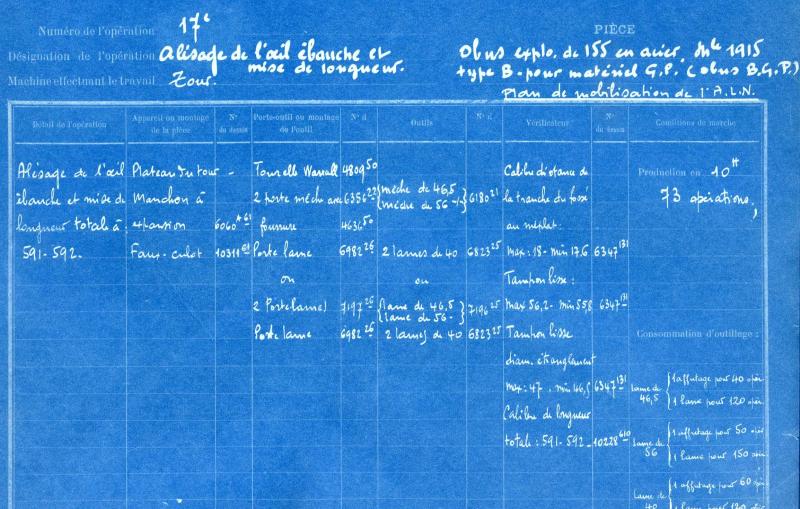 Numéro de l'opération 17e
PIÈCE
Désignation de l'opération Alésage de l'œil ébauche et
mise de longueur.
Machine effectuant le travail Tour.
Obus explo. de 155 en acier, Mle 1915
type B. pour matériel G.P. (obus B.G.P.)
Plan de mobilisation de l'A.L.N.
Détail de l'opération
Appareil ou montage de la pièce
N° du dessin
Porte-outil ou montage de l'outil
N° d
Outils
N° d
Vérificateur
N° du dessin
Conditions de marche
Alésage de l'œil
ébauche et mise de
longueur totale à
591-592.
Plateau du tour -
Manchon à
expansion 6060 A 61
Faux-culot 10311 61
Tourelle 4809 50
2 porte mèche avec 6356 22
fourrure 4636 50
Porte lame 6982 26
ou
2 Porte lames 7197 26
Porte lame 6982 26
mèche de 46,5
mèche de 56 6180 21
2 lames de 40 6823 25
ou
lame de 46,5
lame de 56 - 7196 25
2 lames de 40 6823 25
Calibre distance de
la tranche du fossé
au méplat:
max: 18 - min 17,6 6347 131
Tampon lisse:
max 56,2 - min 55,8 6347 131
Tampon lisse
diam. étranglement
max: 47 . min 46,5 6347 131
Calibre de longueur
totale: 591-592 - 10228 610
Production en 10 H
73 opérations,
Consommation d'outillage :
lame de 46,5
1 affutage pour 40 opér.
1 lame pour 120 opér.
lame de 56
1 affutage pour 50 opér
1 lame pour 150 opér.
lame de 40
1 affutage pour 60 opér
1 lame pour 120 opér